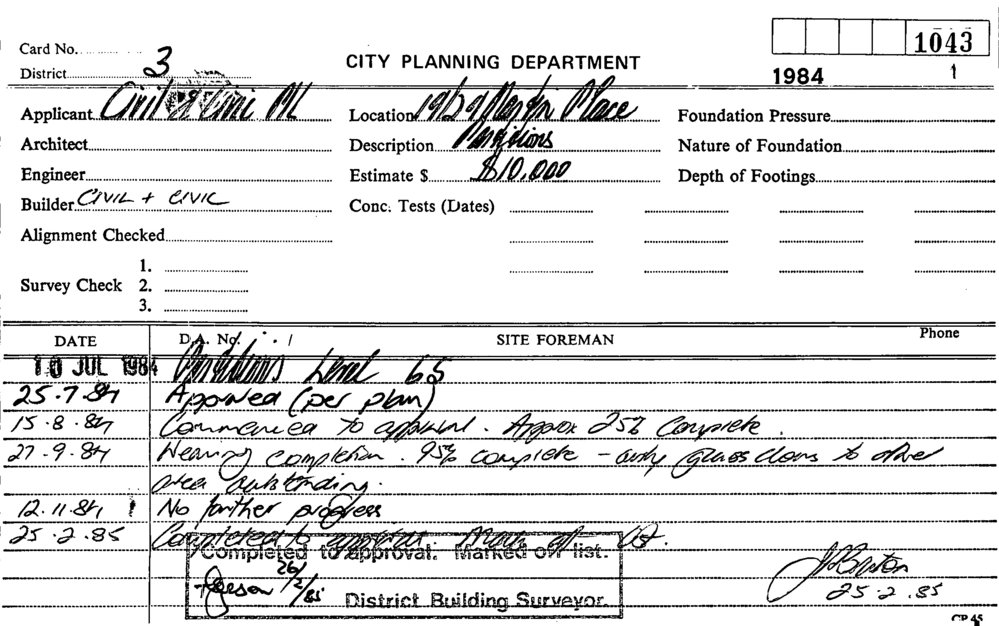 Card No.
District 3
CITY PLANNING DEPARTMENT
1043
1984 1
Applicant Civil & Civic P/L
Location 19/29 Martin Place
Foundation Pressure
Architect
Description Partitions
Nature of Foundation
Engineer
Estimate $ $10,000
Depth of Footings
Builder CIVIL + CIVIC
Conc. Tests (Dates)
Alignment Checked
1.
Survey Check 2.
3.
DATE D.A. No. SITE FOREMAN Phone
10 JUL 1984 Partitions Level 65
25.7.84 Approved (per plan)
15.8.84 Commenced to approval. Approx 25% Complete.
27.9.84 Nearing completion. 95% complete - only glass doors to other
area outstanding.
12.11.84 No further progress
25.2.85 Completed to approval.
Completed to approval. Marked off list.
26/2/85
District Building Surveyor.
25.2.85
CP 45